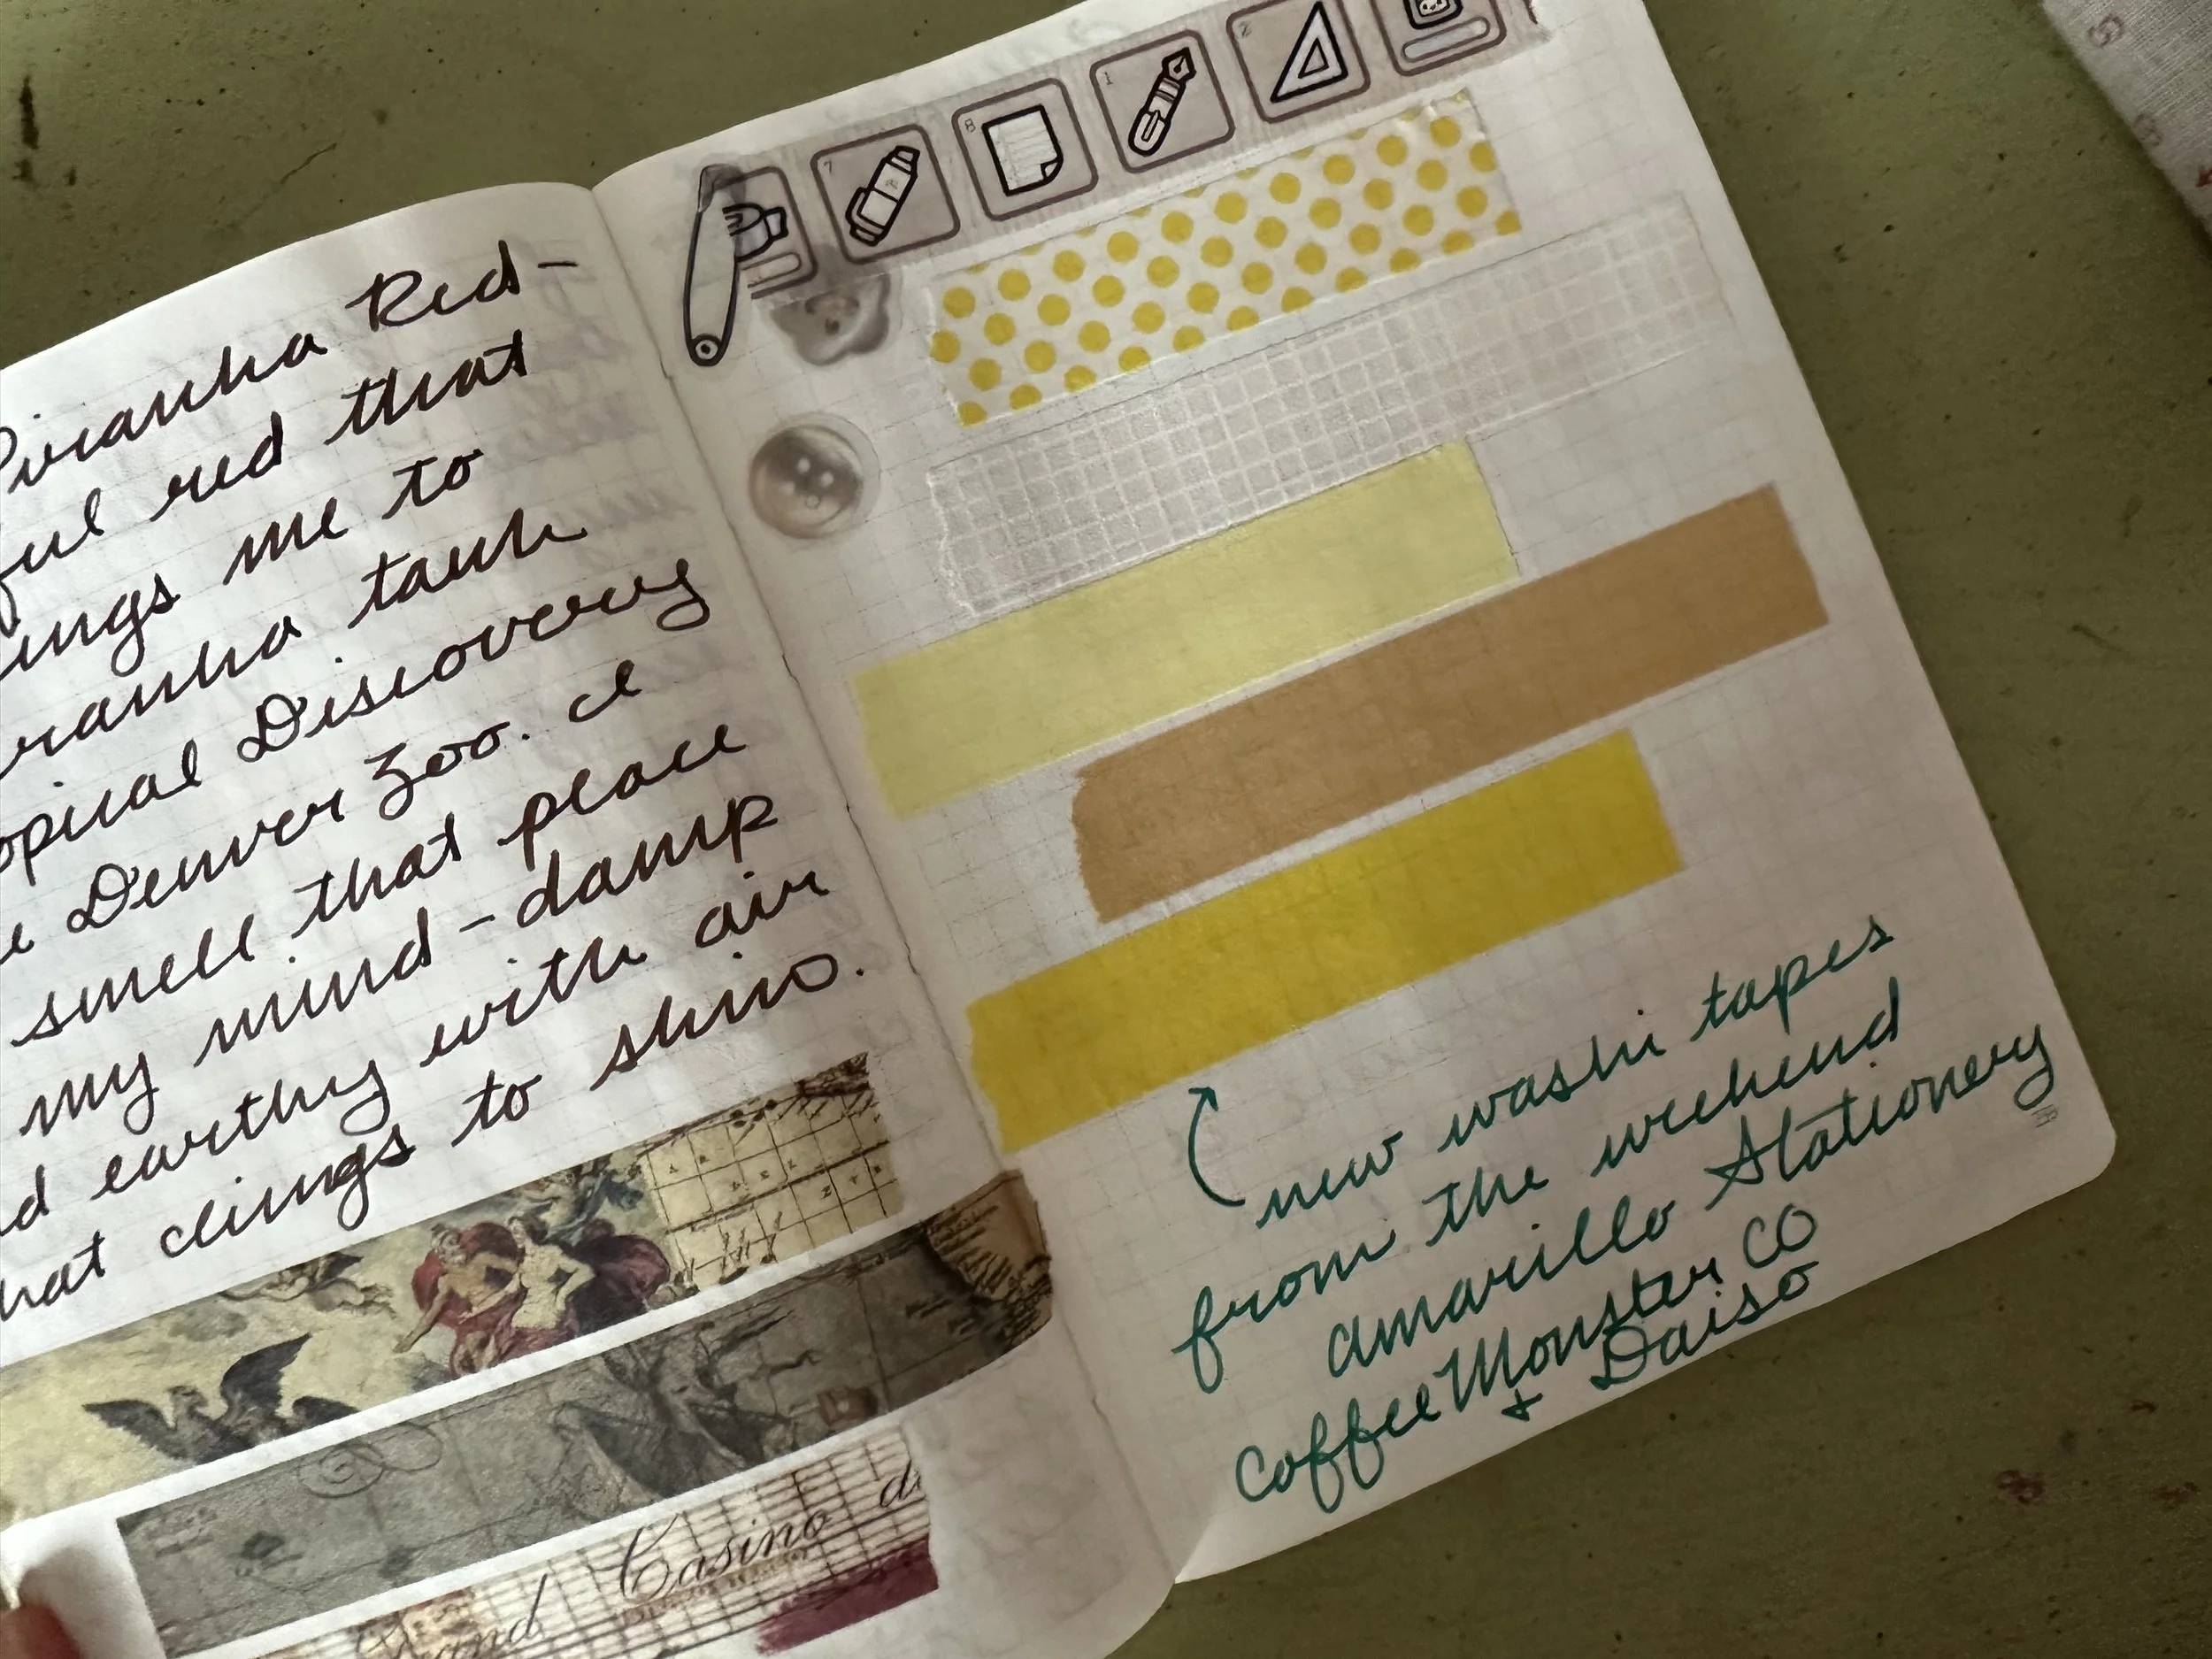 Piranha Red-
ful red that
ings me to
ranha tank
opical Discovery
e Denver Zoo. I
smell that place
my mind - damp
d earthy with air
hat clings to skin.
Casino de
and
7
8
1
2
new washi tapes
from the weekend
Amarillo Stationery
Coffee Monster CO
+ Daiso